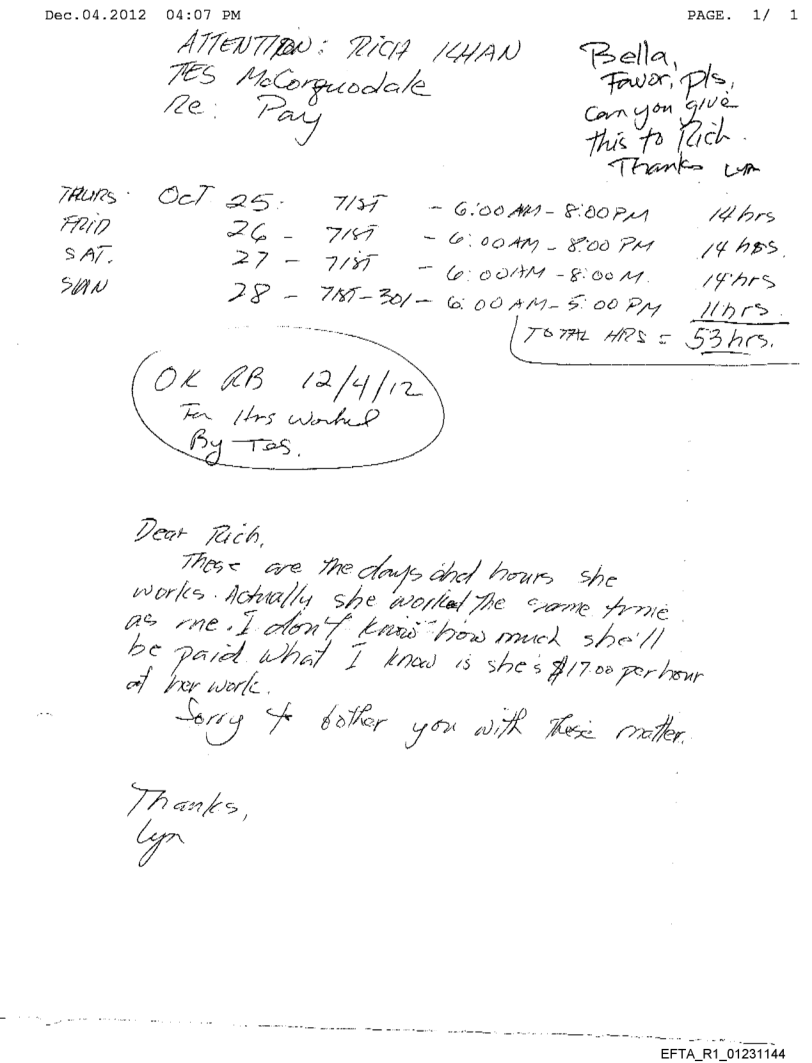 Dec.04.2012 04:07 PM PAGE. 1/ 1
ATTENTION: RICH KHAN
TES McCorquodale
Re: Pay
Bella,
Favor, pls,
can you give
this to Rich.
Thanks Lyn
THURS. OCT 25: 71ST - 6:00 AM - 8:00 PM 14 hrs
FRID 26 - 71ST - 6:00 AM - 8:00 PM 14 hrs.
SAT. 27 - 71ST - 6:00 AM - 8:00 M. 14 hrs
SUN 28 - 71ST - 301 - 6:00 AM - 5:00 PM 11 hrs.
TOTAL HRS = 53 hrs.
OK RB 12/4/12
For Hrs Worked
By Tes.
Dear Rich,
These are the days and hours she
works. Actually she worked the same time
as me. I don't know how much she'll
be paid what I know is she's $17.00 per hour
at her work.
Sorry to bother you with these matter.
Thanks,
Lyn
EFTA_R1_01231144